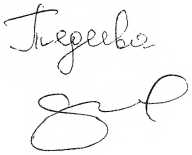 Тедеева